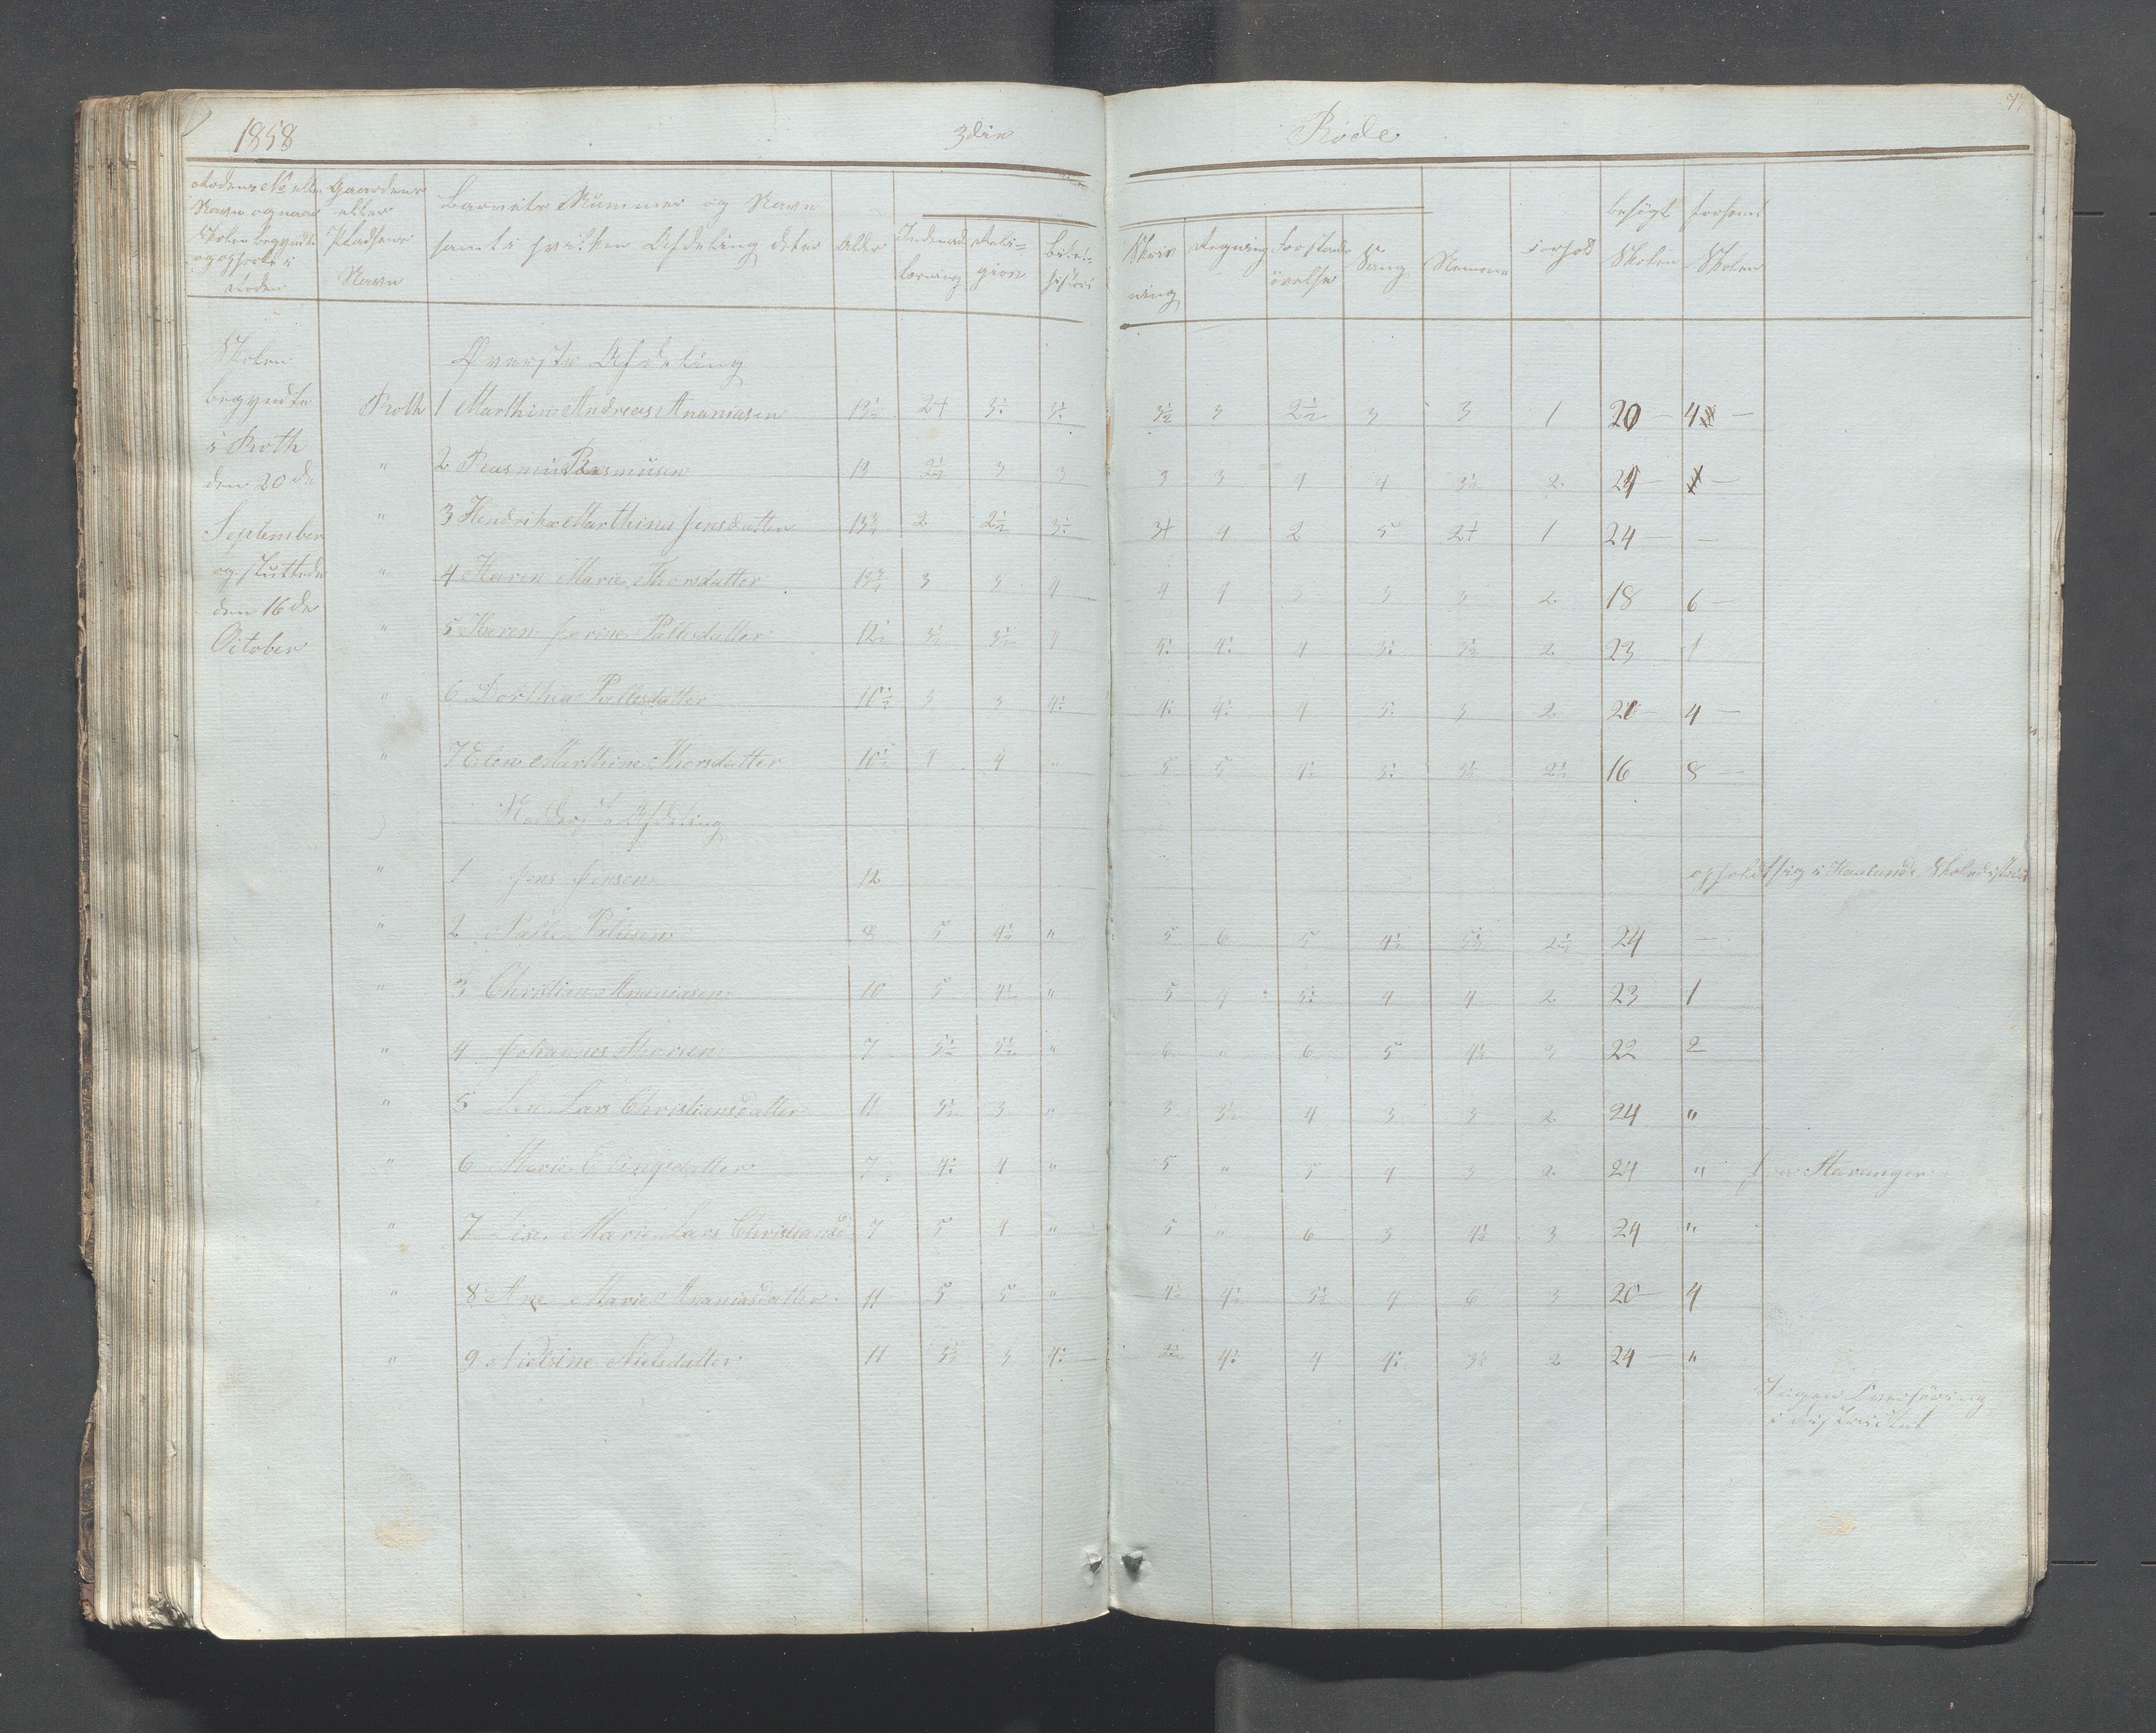 1858 3die Rode
Rodens No eller Navn og naar Skolen begyndte og ophørte i Roden
Gaardens eller Pladsens Navn
Barnets Nummer og Navn samt i hvilken Afdeling det er
Alder
Indenadlæsning
Religion
Bibelhistorie
Skrivning
Regning
Forstandsøvelse
Sang
Nemme
Forhold
besøgt Skolen
forsømt Skolen
Skolen
begyndte
i Roth
den 20de
September
og sluttede
den 16de
October
Øverste Afdeling
Roth 1 Marthin Andreas Ananiasen 13½ 2+ 3÷ 3÷ 3½ 3 2½ 3 3 1 20 — 4 —
" 2 Rasmus Rasmusen 13 2½ 3 3 3 3 4 4 3½ 2 24 — —
" 3 Hendrikæ Marthine Jensdatter 13¾ 2 2½ 3÷ 3+ 4 2 5 2+ 1 24 — —
" 4 Karen Marie Thorsdatter 13¾ 3 3 4 4 4 3 3 3 2 18 6 —
" 5 Karen Jorine Pallesdatter 12½ 3½ 3½ 4 4÷ 4÷ 4 3÷ 3½ 2 23 1
" 6 Dorthea Pallesdatter 10½ 3 3 4÷ 4÷ 4÷ 4 5÷ 3 2 20 — 4 —
" 7 Elen Marthine Thorsdatter 10½ 4 4 " 5 5 4½ 5÷ 3½ 2½ 16 8 —
Nederste Afdeling
" 1 Jens Jensen 12 opholdt sig i Haalands Skoledistrict
" 2 Palle Pallesen 8 5 4½ " 5 6 5 4½ 5½ 2½ 24 —
" 3 Christian Ananiasen 10 5 4½ " 5 4 5÷ 4 4 2 23 1
" 4 Johannes Thorsen 7 5½ 5½ " 6 " 6 5 4½ 3 22 2
" 5 Lea Lars Christiansdatter 11 3½ 3 " 3 3½ 4 3 3 2 24 "
" 6 Marie Elingsdatter 7 4½ 4 " 5 " 5 4 3 2 24 " fra Stavanger
" 7 Lise Marie Lars Christiansd 7 5 4 " 5 " 6 3 4½ 3 24 "
" 8 Ane Marie Ananiasdatter 11 5 5 " 4½ 4½ 5½ 4 6 3 20 — 4
" 9 Nielsine Nielsdatter 11 3½ 3 4÷ 2½ 4÷ 4 4÷ 3½ 2 24 — "
Ingen
i Districtet